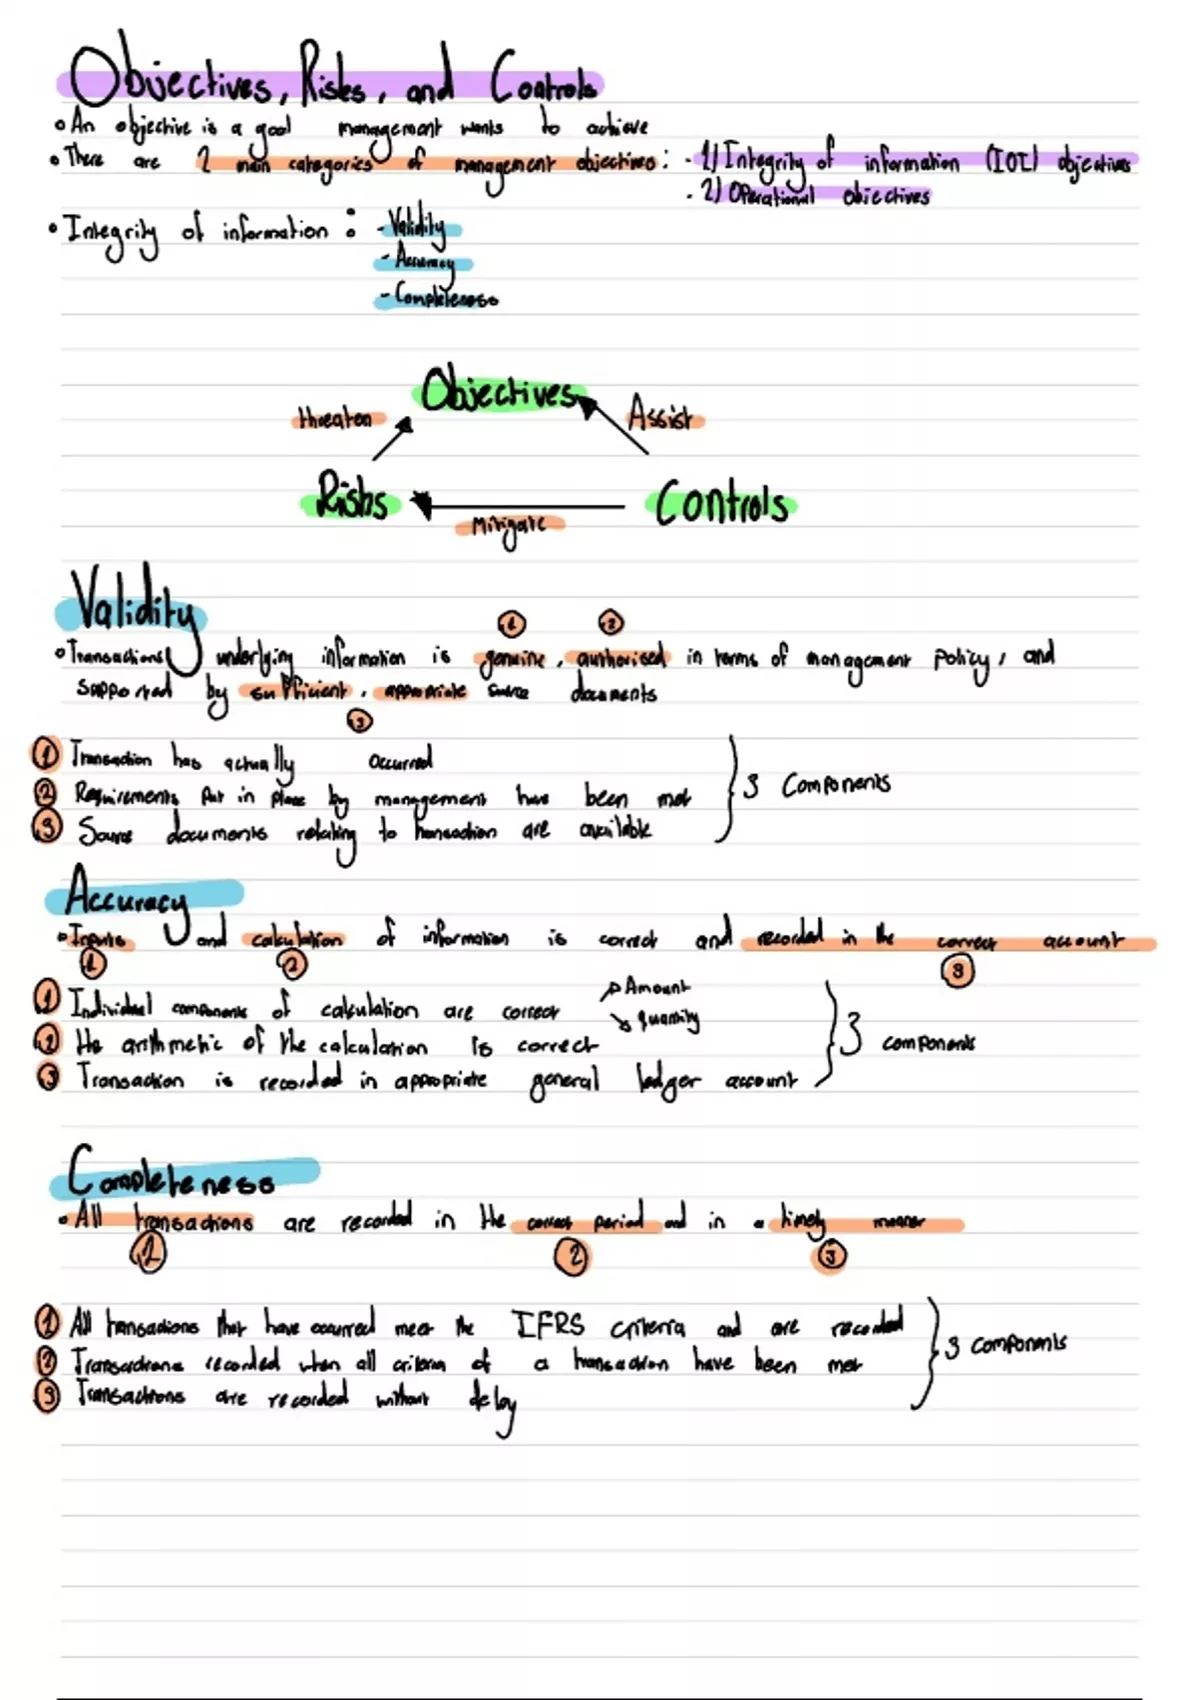 Objectives, Risks, and Controls
• An objective is a goal management wants to achieve
• There are 2 main categories of management objectives: - 1) Integrity of information (IOI) objectives
- 2) Operational objectives
• Integrity of information: - Validity
- Accuracy
- Completeness
Objectives
threaten Assist
Risks Controls
Mitigate
Validity
1 2
• Transactions underlying information is genuine, authorised in terms of management policy, and
supported by sufficient, appropriate source documents
3
1 Transaction has actually occurred
2 Requirements put in place by management have been met } 3 Components
3 Source documents relating to transaction are available
Accuracy
• Inputs and calculation of information is correct and recorded in the correct account
1 2 3
1 Individual components of calculation are correct → Amount
↘ quantity
2 the arithmetic of the calculation is correct } 3 components
3 Transaction is recorded in appropriate general ledger account
Completeness
• All transactions are recorded in the correct period and in a timely manner
1 2 3
1 All transactions that have occurred meet the IFRS criteria and are recorded
2 Transactions recorded when all criteria of a transaction have been met } 3 components
3 Transactions are recorded without delay